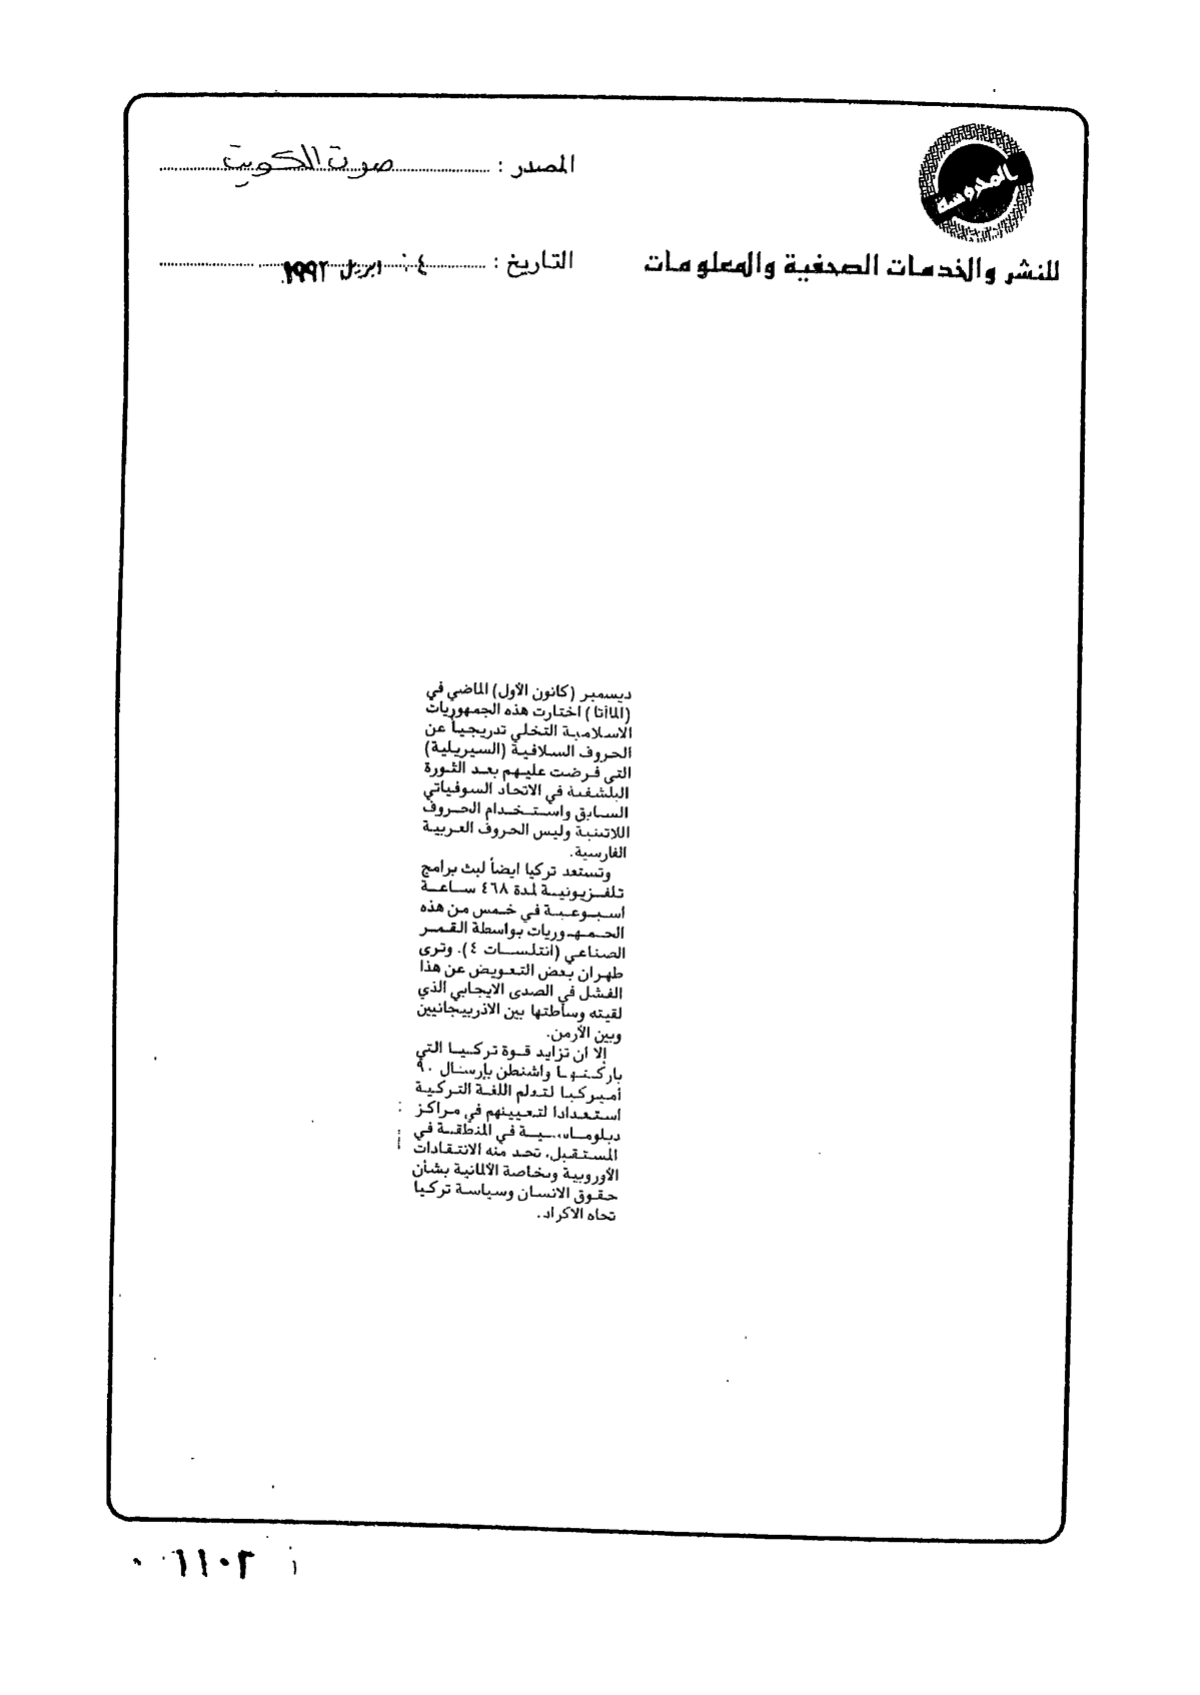 المحروسة
المصدر : صوت الكويت
للنشر والخدمات الصحفية والمعلومات
التاريخ : ٤ ابريل ١٩٩٢
ديسمبر (كانون الأول) الماضي في
(الماأتا) اختارت هذه الجمهوريات
الاسلامية التخلي تدريجياً عن
الحروف السلافية (السيريلية)
التي فرضت عليهم بعد الثورة
البلشفية في الاتحاد السوفياتي
السابق واستخدام الحروف
اللاتينية وليس الحروف العربية
الفارسية.
وتستعد تركيا ايضاً لبث برامج
تلفزيونية لمدة ٤٦٨ ساعة
اسبوعية في خمس من هذه
الجمهوريات بواسطة القمر
الصناعي (انتلسات ٤). وترى
طهران بعض التعويض عن هذا
الفشل في الصدى الايجابي الذي
لقيته وساطتها بين الاذربيجانيين
وبين الأرمن.
إلا ان تزايد قوة تركيا التي
باركتها واشنطن بإرسال ٩٠
أميركيا لتعلم اللغة التركية
استعدادا لتعيينهم في مراكز
دبلوماسية في المنطقة في
المستقبل، تحد منه الانتقادات
الأوروبية وبخاصة الألمانية بشأن
حقوق الانسان وسياسة تركيا
تجاه الاكراد.